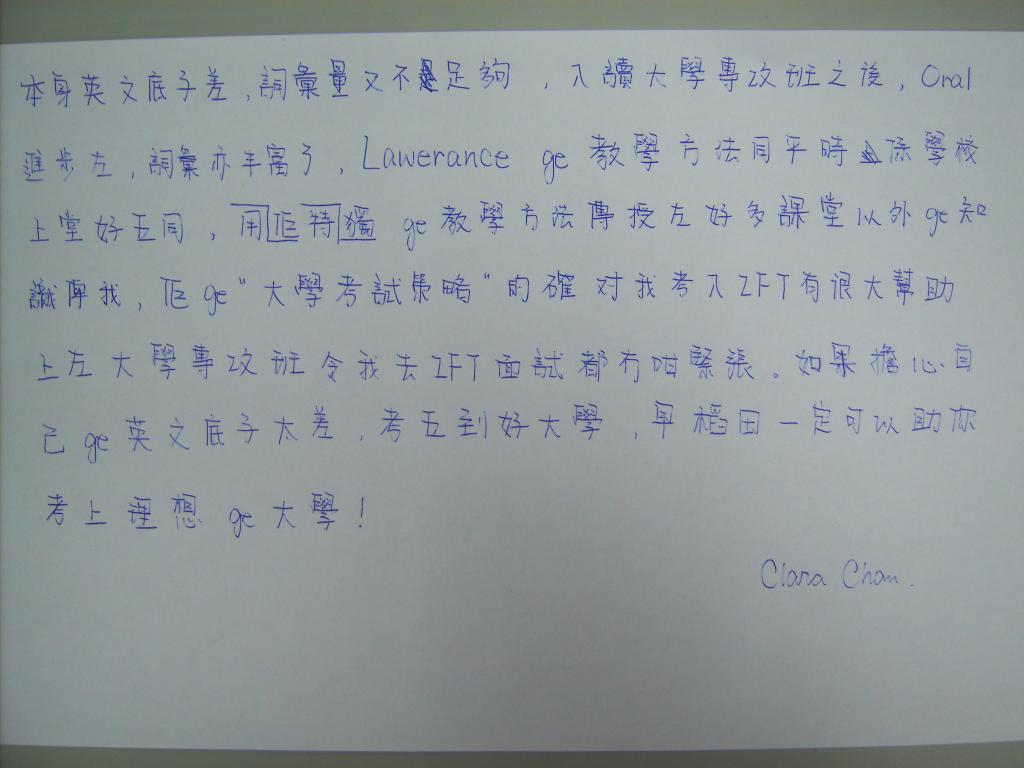 本身英文底子差,詞彙量又不足夠,入讀大學專攻班之後,Oral
進步左,詞彙亦丰富了,Lawerance ge 教學方法同平時係學校
上堂好五同,用佢特獨 ge 教學方法傳授左好多課堂以外 ge 知
識俾我,佢 ge "大學考試策略" 的確对我考入IFT有很大幫助
上左大學專攻班令我去IFT面試都冇咁緊張。如果擔心自
己 ge 英文底子太差,考五到好大學,早稻田一定可以助你
考上理想 ge 大學!
Clara Chan.